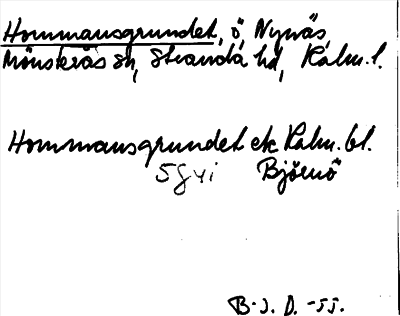 Hommansgrundet, ö, Nynäs,
Mönsterås sn, Stranda hd, Kalm. l.
Hommansgrundet ek Kalm. bl.
5g vi Björnö
B-J. D. -55.